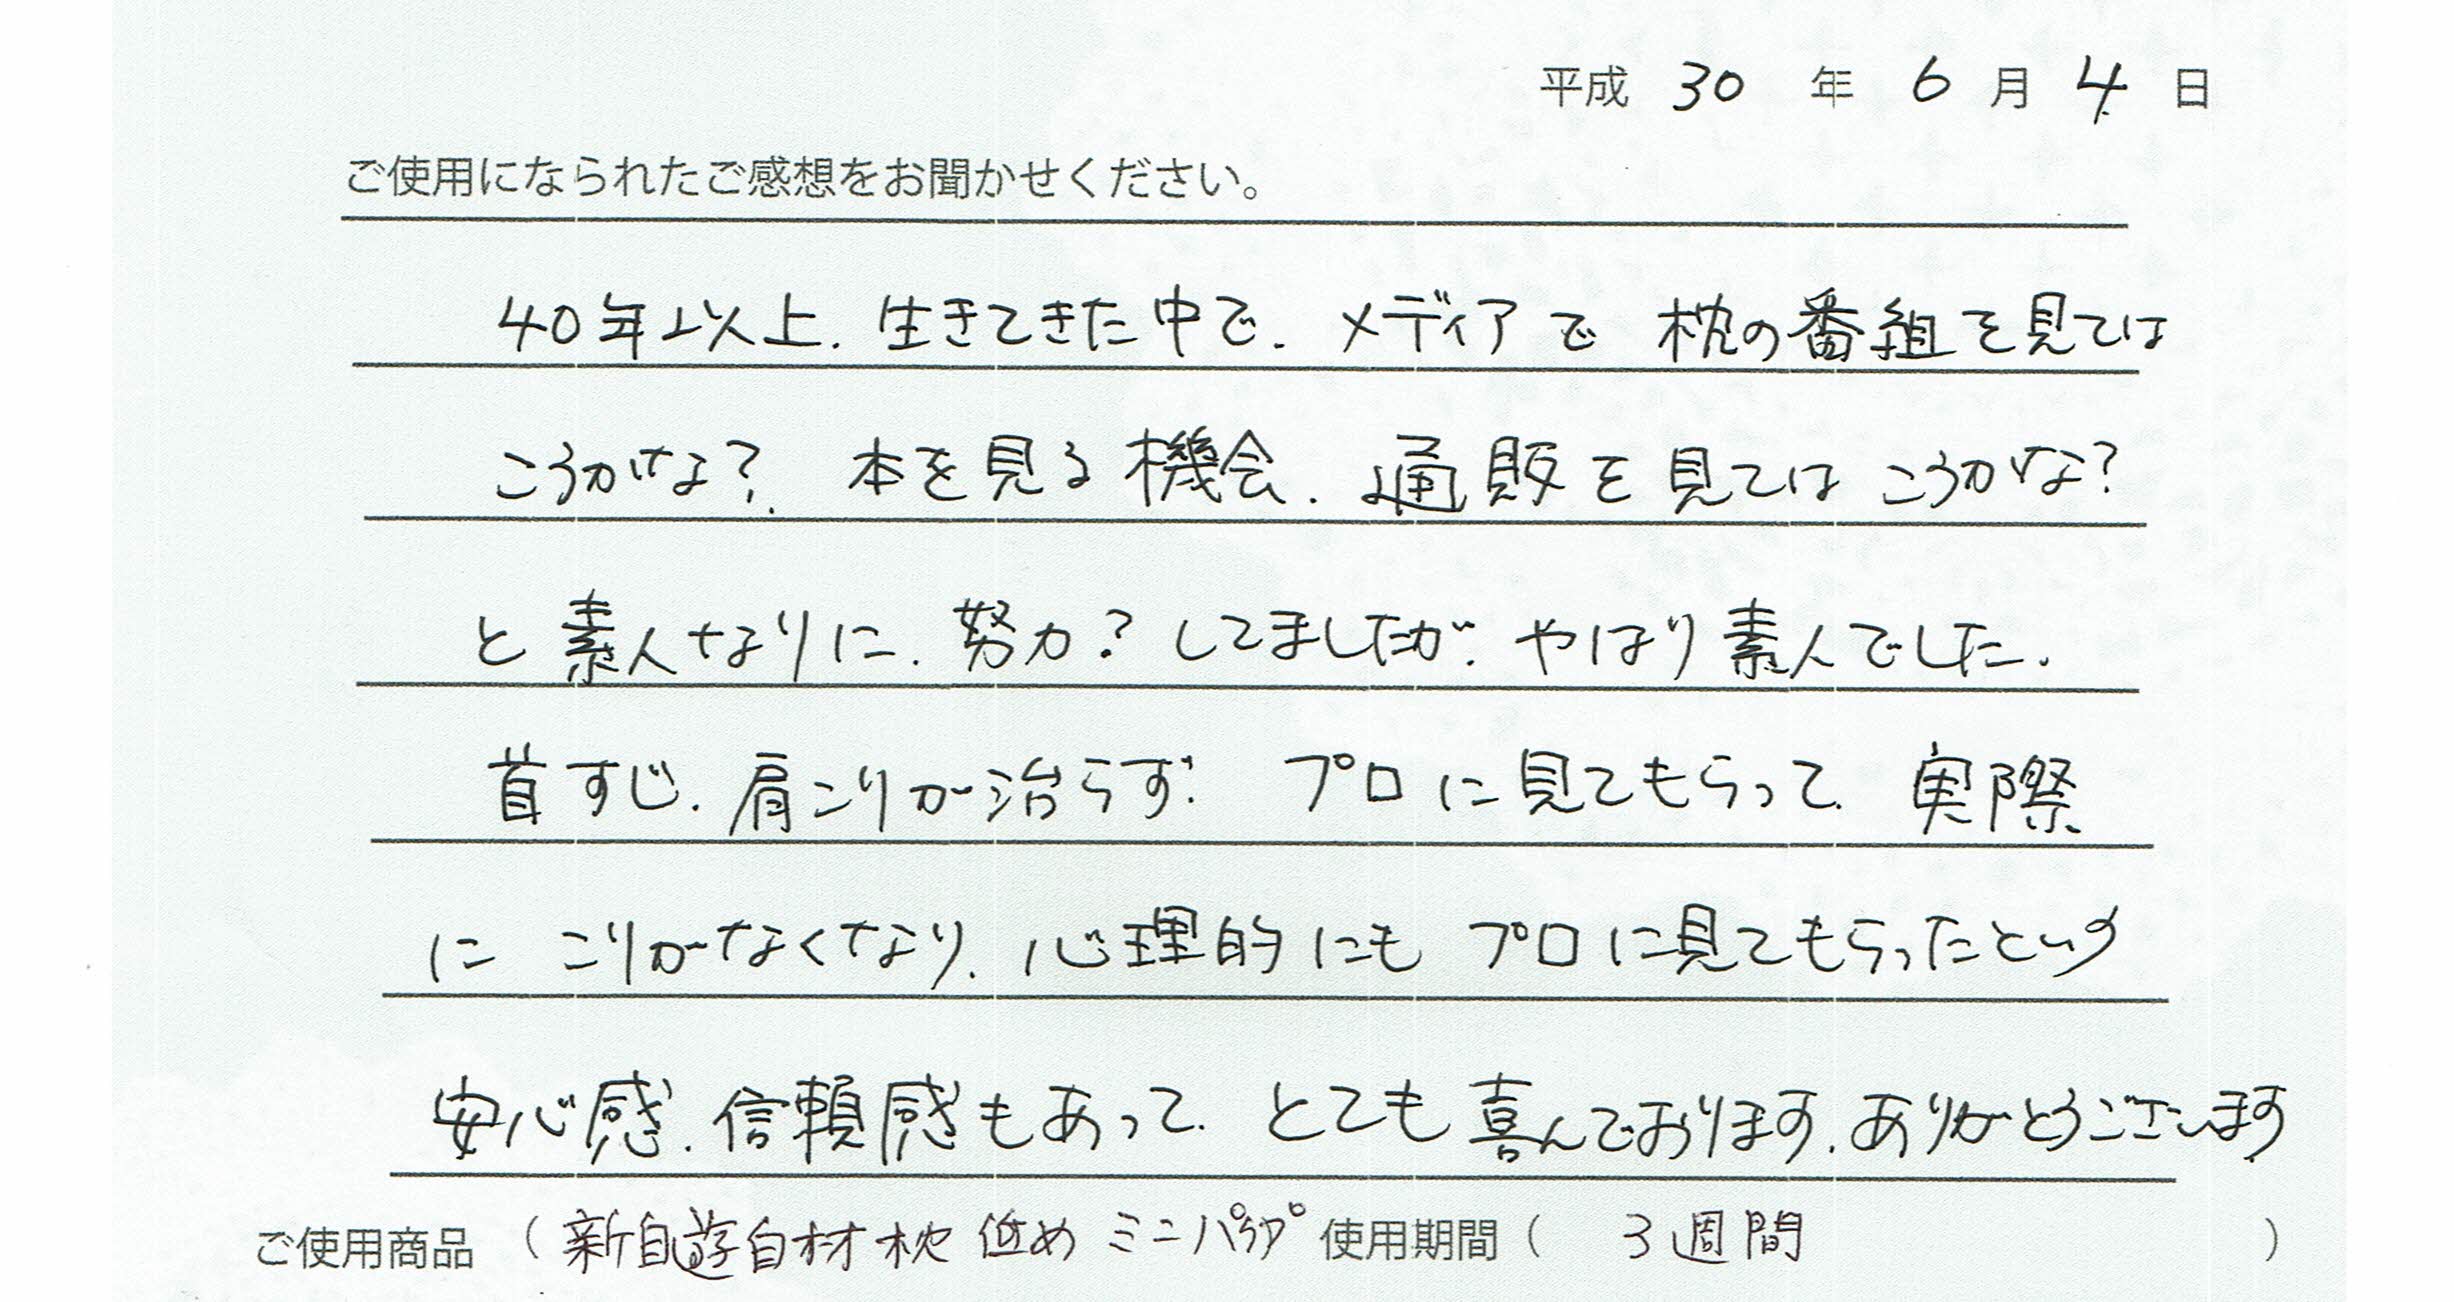 平成 30 年 6 月 4 日
ご使用になられたご感想をお聞かせください。
40年以上、生きてきた中で、メディアで 枕の番組を見ては
こうかな？、本を見る機会、通販を見ては こうかな？
と素人なりに、努力？してましたが、やはり素人でした。
首すじ、肩こりが治らず、プロに見てもらって、実際
に こりがなくなり、心理的にも プロに見てもらったという
安心感、信頼感もあって、とても喜んでおります。ありがとうございます
ご使用商品 （新自遊自材枕 低め ミニパイプ 使用期間（ 3週間 ）